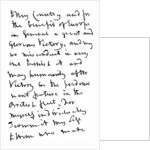 my Country and for
the benefit of Europe
in General a great and
Glorious Victory, and may
no misconduct in any
one tarnish it and
may humanity after
Victory be the predom
inant feature in the
British fleet, For
myself individually
I commit my life
to Him who made